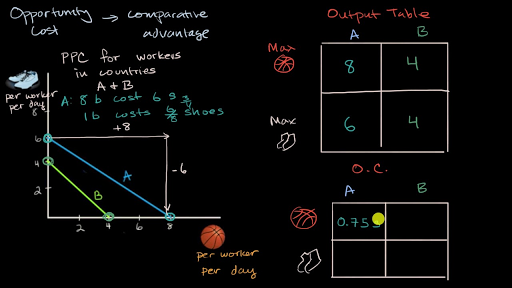 Opportunity Cost → comparative advantage
PPC for workers
in countries
A & B
A: 8 b cost 6 s
1 b costs 6/8 shoes
3/4
+8
-6
per worker
per day
8
6
4
2
A
B
2
4
6
8
per worker
per day
Output Table
A
B
Max
8
4
Max
6
4
O.C.
A
B
0.75 s